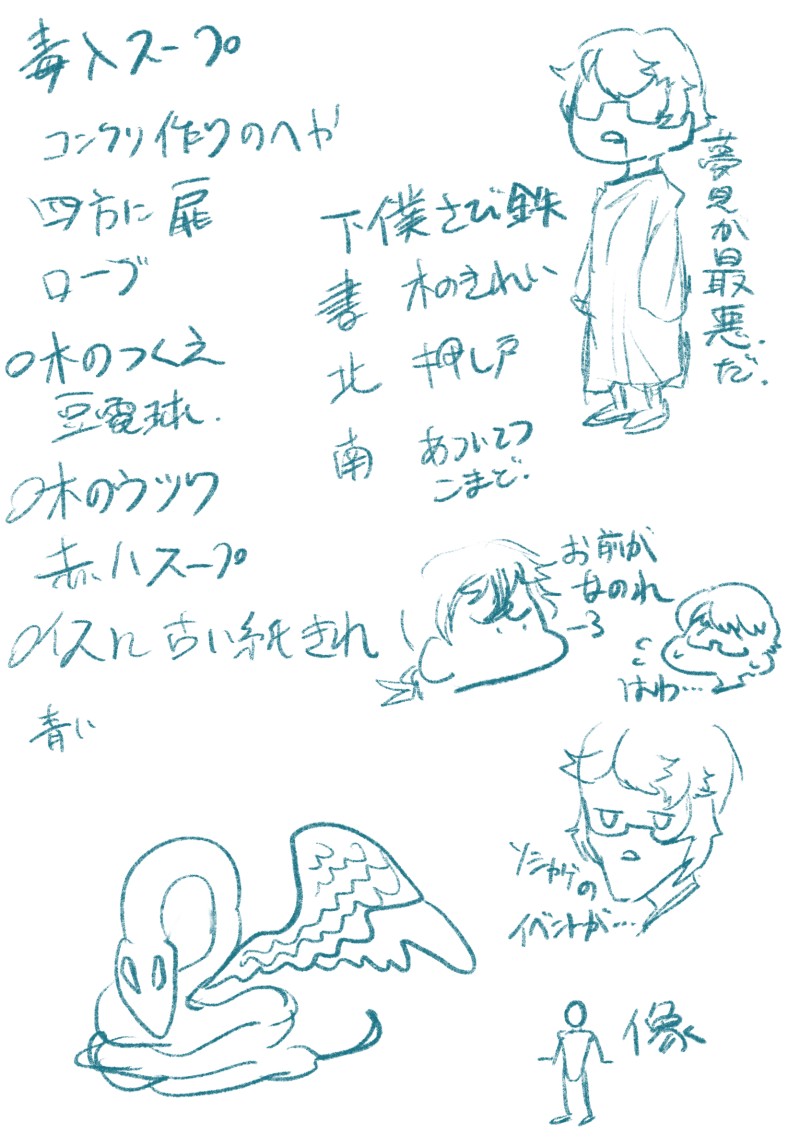 毒入スープ
コンクリ作りのへや
四方に扉
ローブ
○木のつくえ
豆電球.
○木のウツワ
赤いスープ
○イスに古い紙きれ
青い
下僕 さび鉄
書 木のきれい
北 押し戸
南 あついてつ
こまど.
夢見が最悪だ.
お前が
なのれ
はわ…
ソシャゲの
イベントが…
像